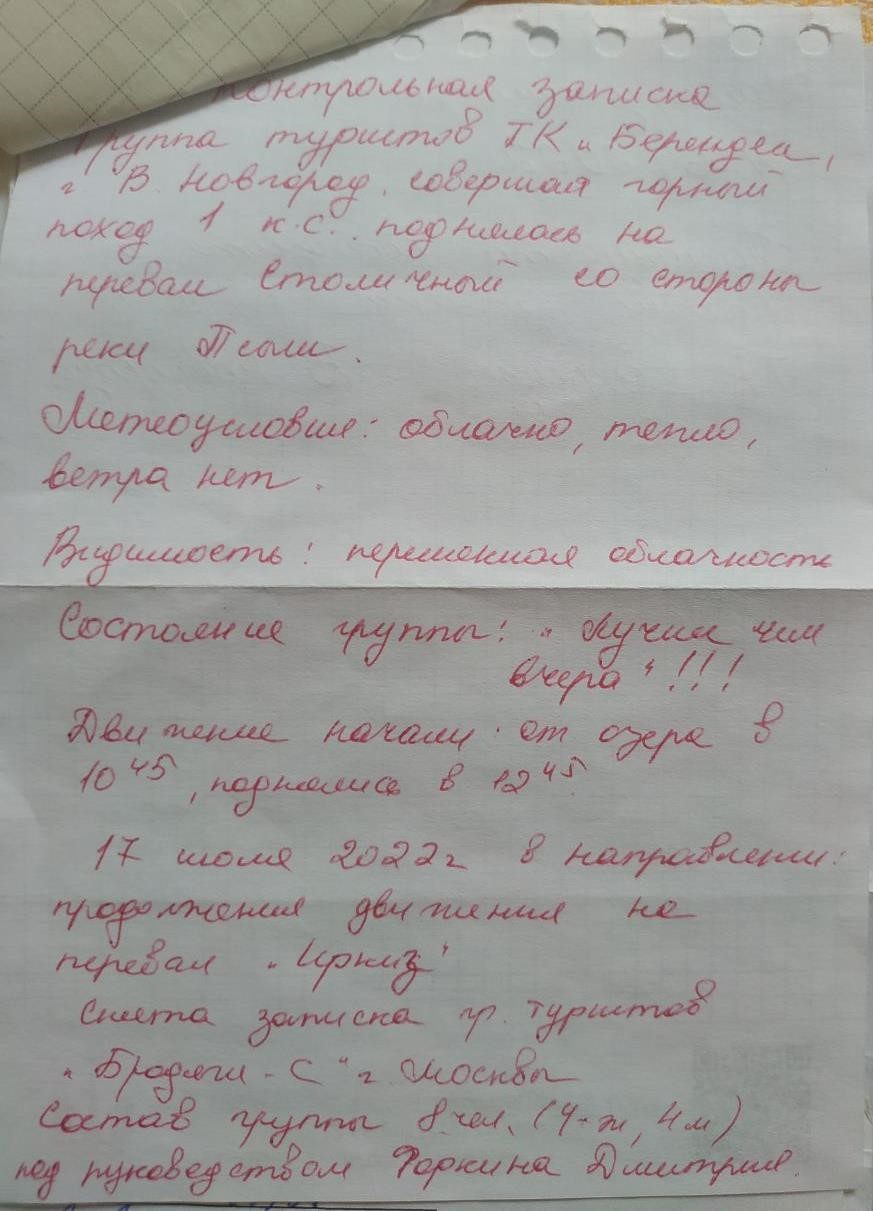 Контрольная записка
Группа туристов ТК "Берендеи"
г. В. Новгород, совершая горный
поход 1 к.с. поднялась на
перевал Столичный со стороны
реки Псыш.
Метеоусловия: облачно, тепло,
ветра нет.
Видимость: переменная облачность
Состояние группы: "Лучше чем
вчера"!!!
Движение начали от озера в
10 45, поднялись в 12 45.
17 июля 2022г в направлении:
продолжения движения на
перевал "Иркиз"
Снята записка гр. туристов
"Бродяги - С" г. Москвы
Состав группы 8 чел. (4-ж, 4м)
под руководством Дмитрия.